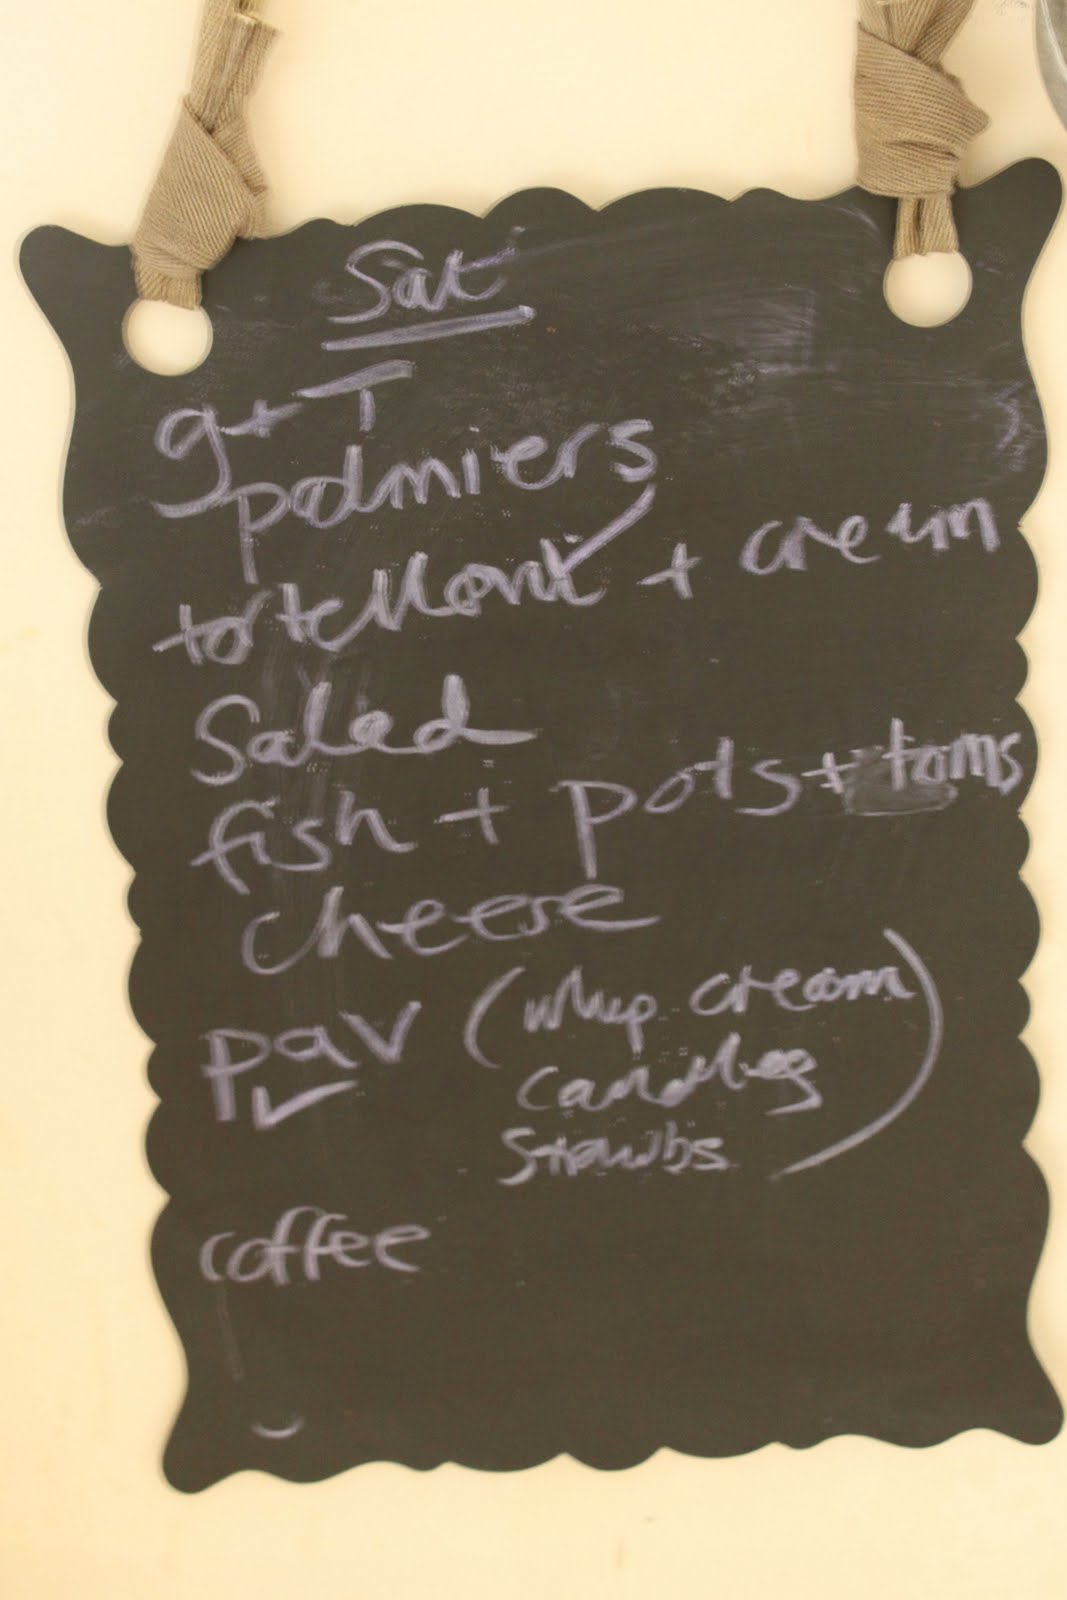 Sat
g + T
palmiers
tortelloni ✓ + cream
Salad
fish + pots + toms
cheese
pav ✓ (whip cream
candles
strawbs)
coffee